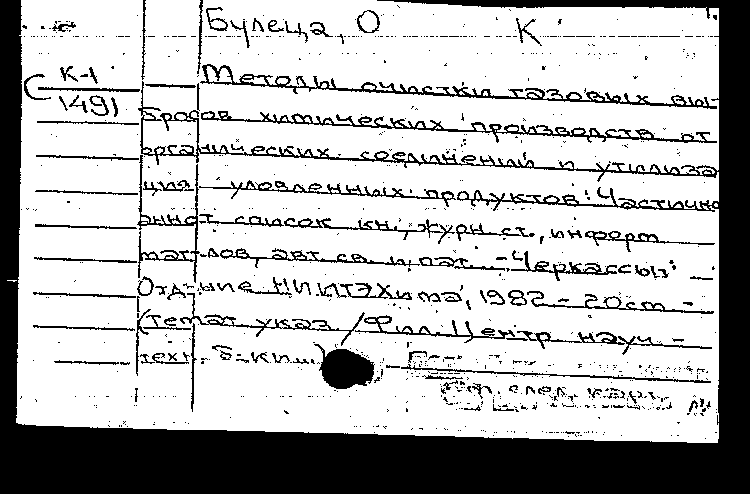 Булеца, О К
К-1
1491
Методы очистки газовых вы-
бросов химических производств от
органических соединений и утилиза
ция уловленных продуктов: Частично
аннот список кн., журн. ст., информ
мат-лов, авт. св. и пат. - Черкассы:
Отд-ние НИИТЭХима, 1982 - 20 ст -
(Темат указ / Фил. Центр науч. -
техн. б-ки ...)
См. след. карт.